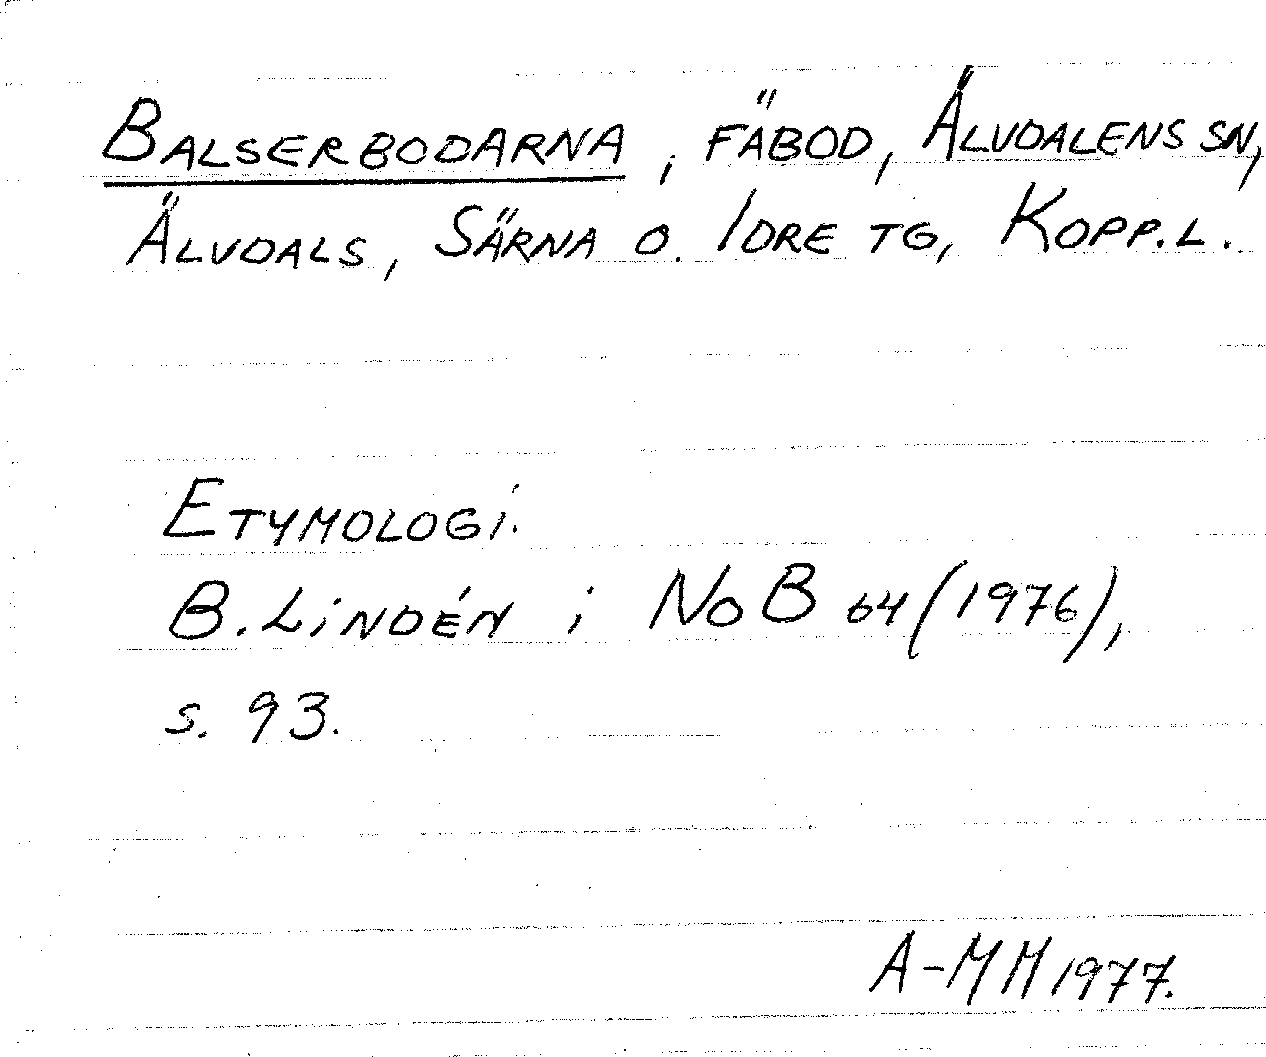 BALSERBODARNA, FÄBOD, ÄLVDALENS SN,
ÄLVDALS, SÄRNA O. IDRE TG, KOPP.L.
ETYMOLOGI.
B. LINDÉN i NoB 64 (1976),
s. 93.
A-MH 1977.